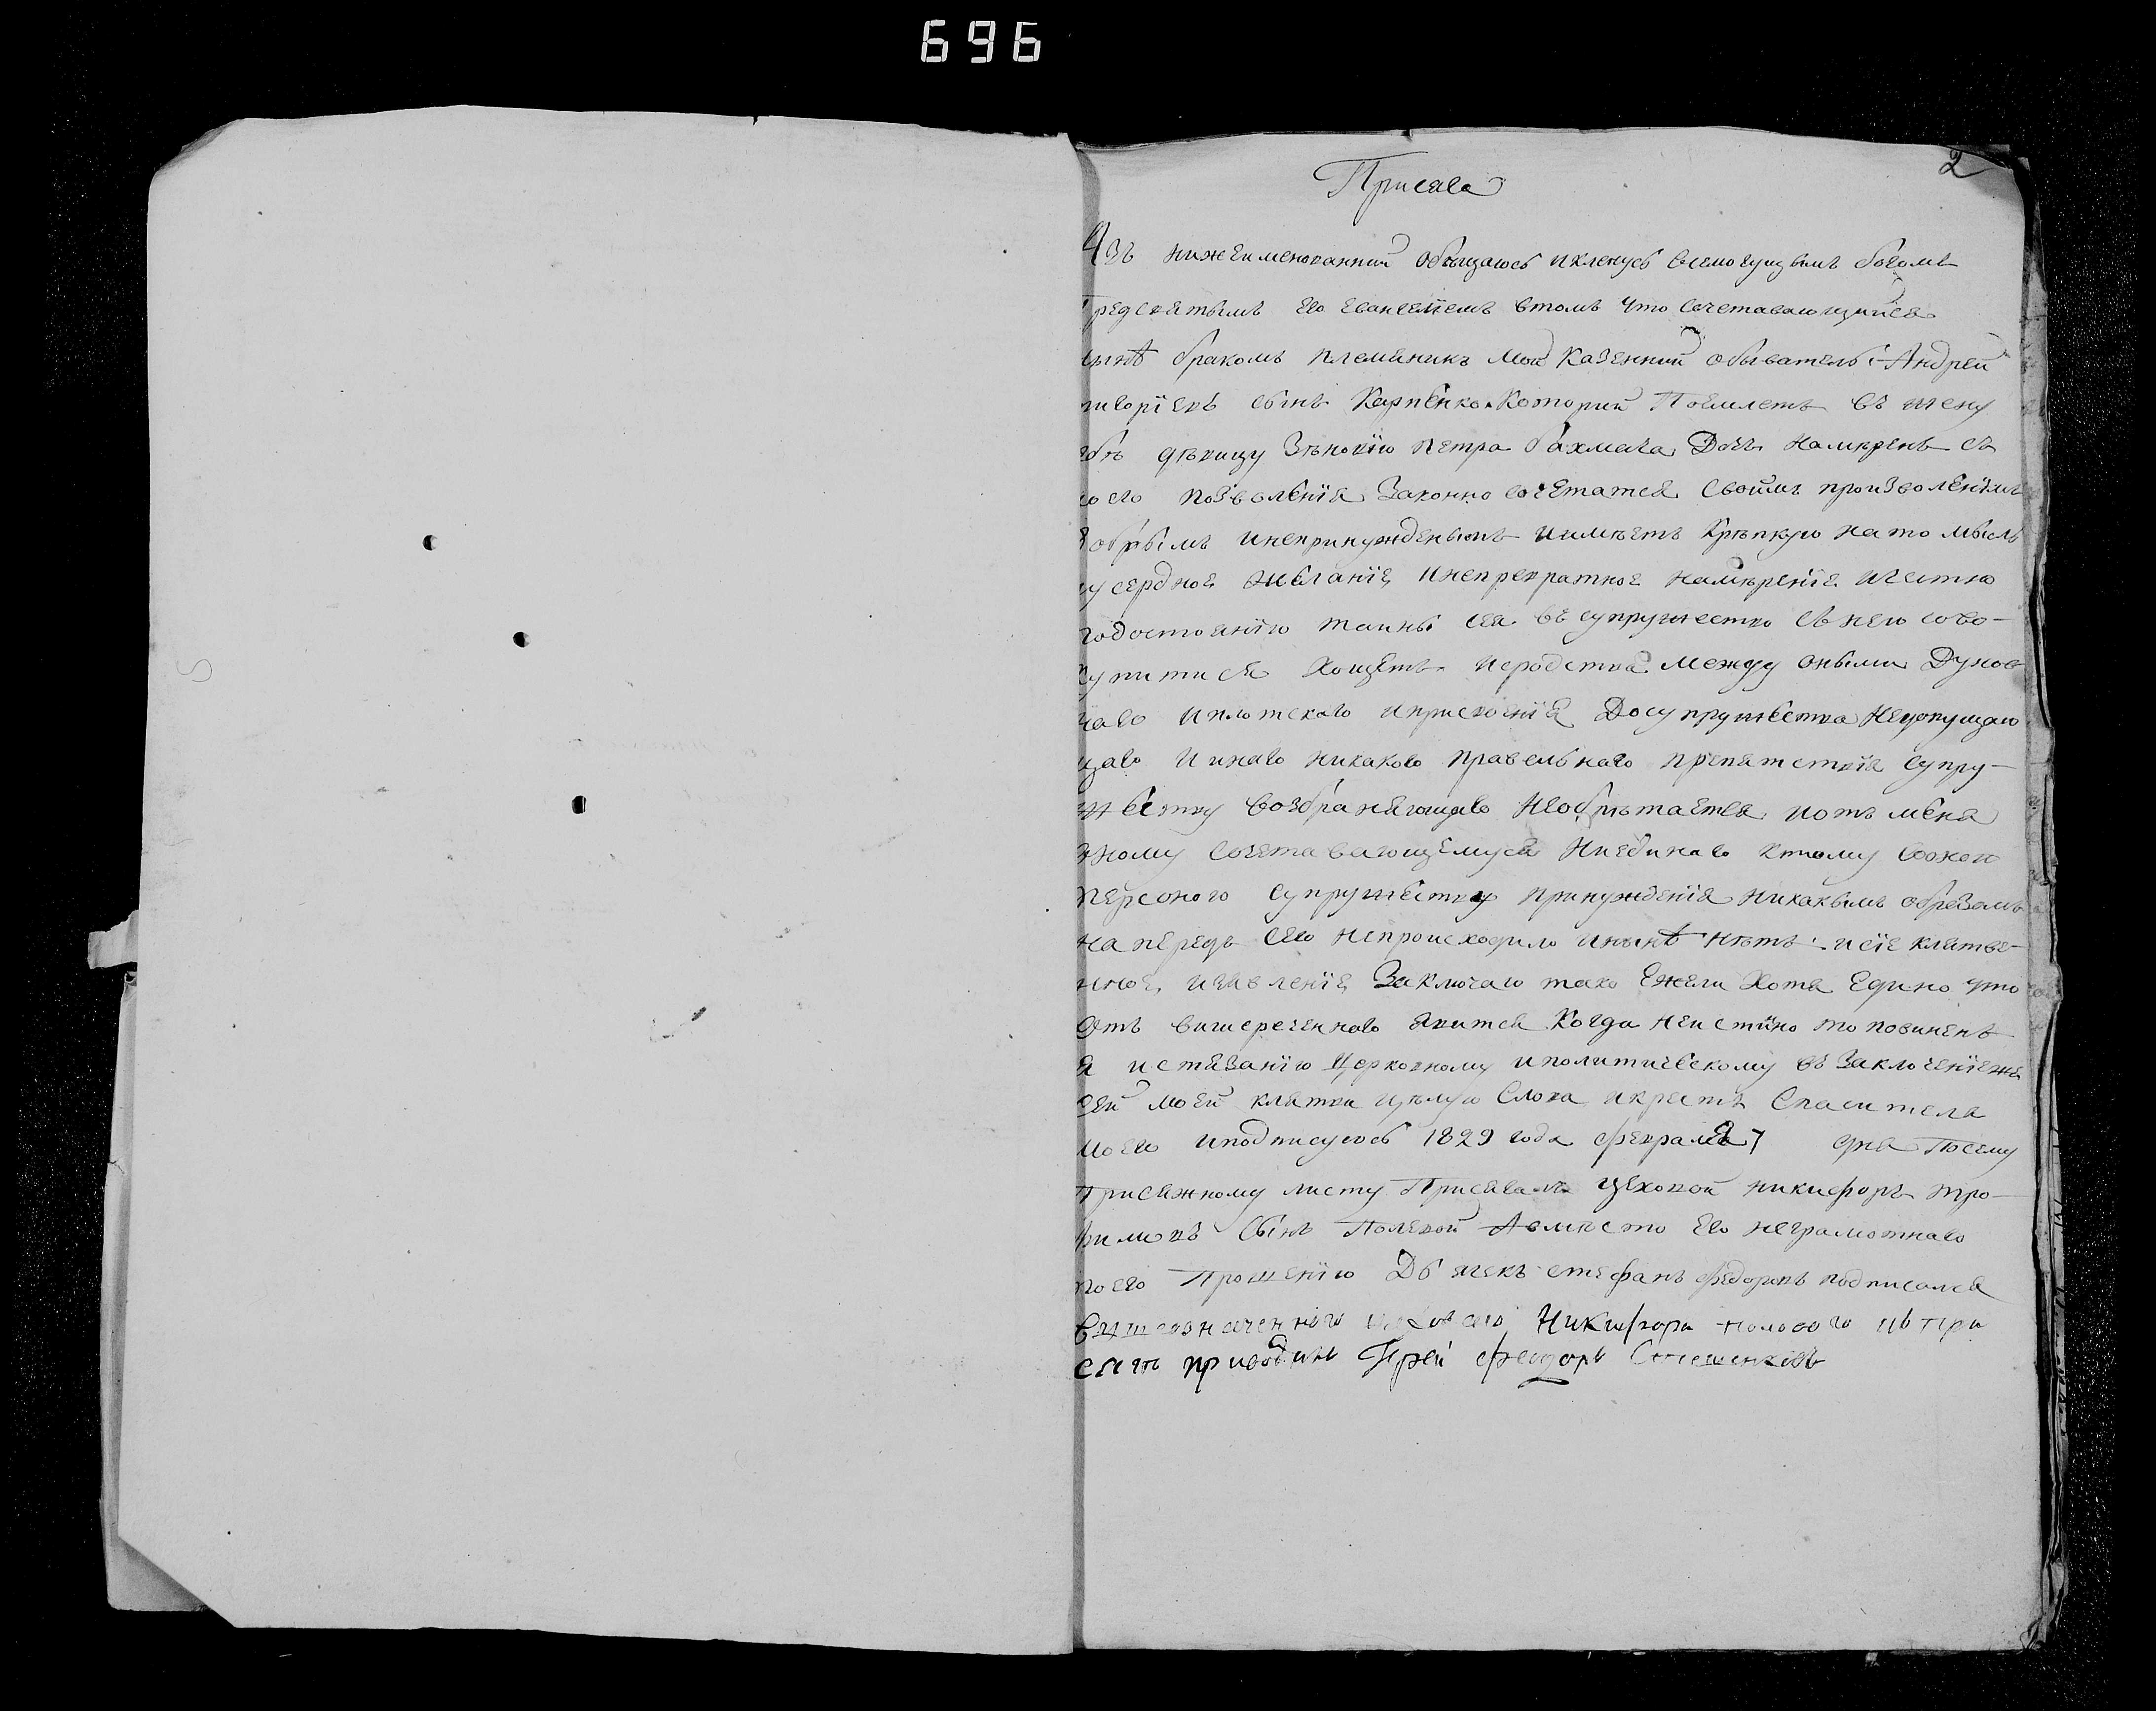 696
2
Присяга
Азъ нижеименованний обѣщаюсь и кленусь всемогущымъ богомъ
предсвятымъ его евангелїемъ втомъ что сочетавающийся
нынѣ бракомъ племѣникъ мой казенний обыватель Андрей
сынъ Карпенко который поемлетъ въ жену
дѣвицу Зѣновїю петра бахмача дочь намѣренъ съ
моего позволенїя законно сочетатся своимъ произволенїемъ
добрымъ инепринужденымъ иимѣетъ крѣпкую на то мысль
усердное желанїе инепревратное намѣренїе ичестно
подостоянїю таины сея въ супружество съ нею сово-
купитися хощетъ исродства между оными духов
наго иплотскаго иприсвоенїя досупружества недопущаю
щаго и инаго никакого правельнаго препятствїя супру-
жеству возбраняющаго необрѣтается иотъ мене
оному сочетавающемуся ниединаго ктому
супружеству принужденїя никакымъ образомъ
напередъ сего непроисходило инынѣ нѣтъ исїе клятве-
нное изявленїе заключаю тако ежели хотя едино что
отъ вишереченнаго явится когда неистинно то повиненъ
я истязанїю церковному иполитическому въ заключенїеже
сей моей клятви цѣлую слова икрестъ спасителя
моего иподписуюсь 1829 года февраля 7 дня посему
присяжному листу присягалъ цеховой никифоръ тро-
фимовъ сынъ полевой авместо его неграмотнаго
поего прошенїю дьячекъ стефанъ федоровъ подписался
вишеозначенного Никифора
приводилъ Іерей феодоръ